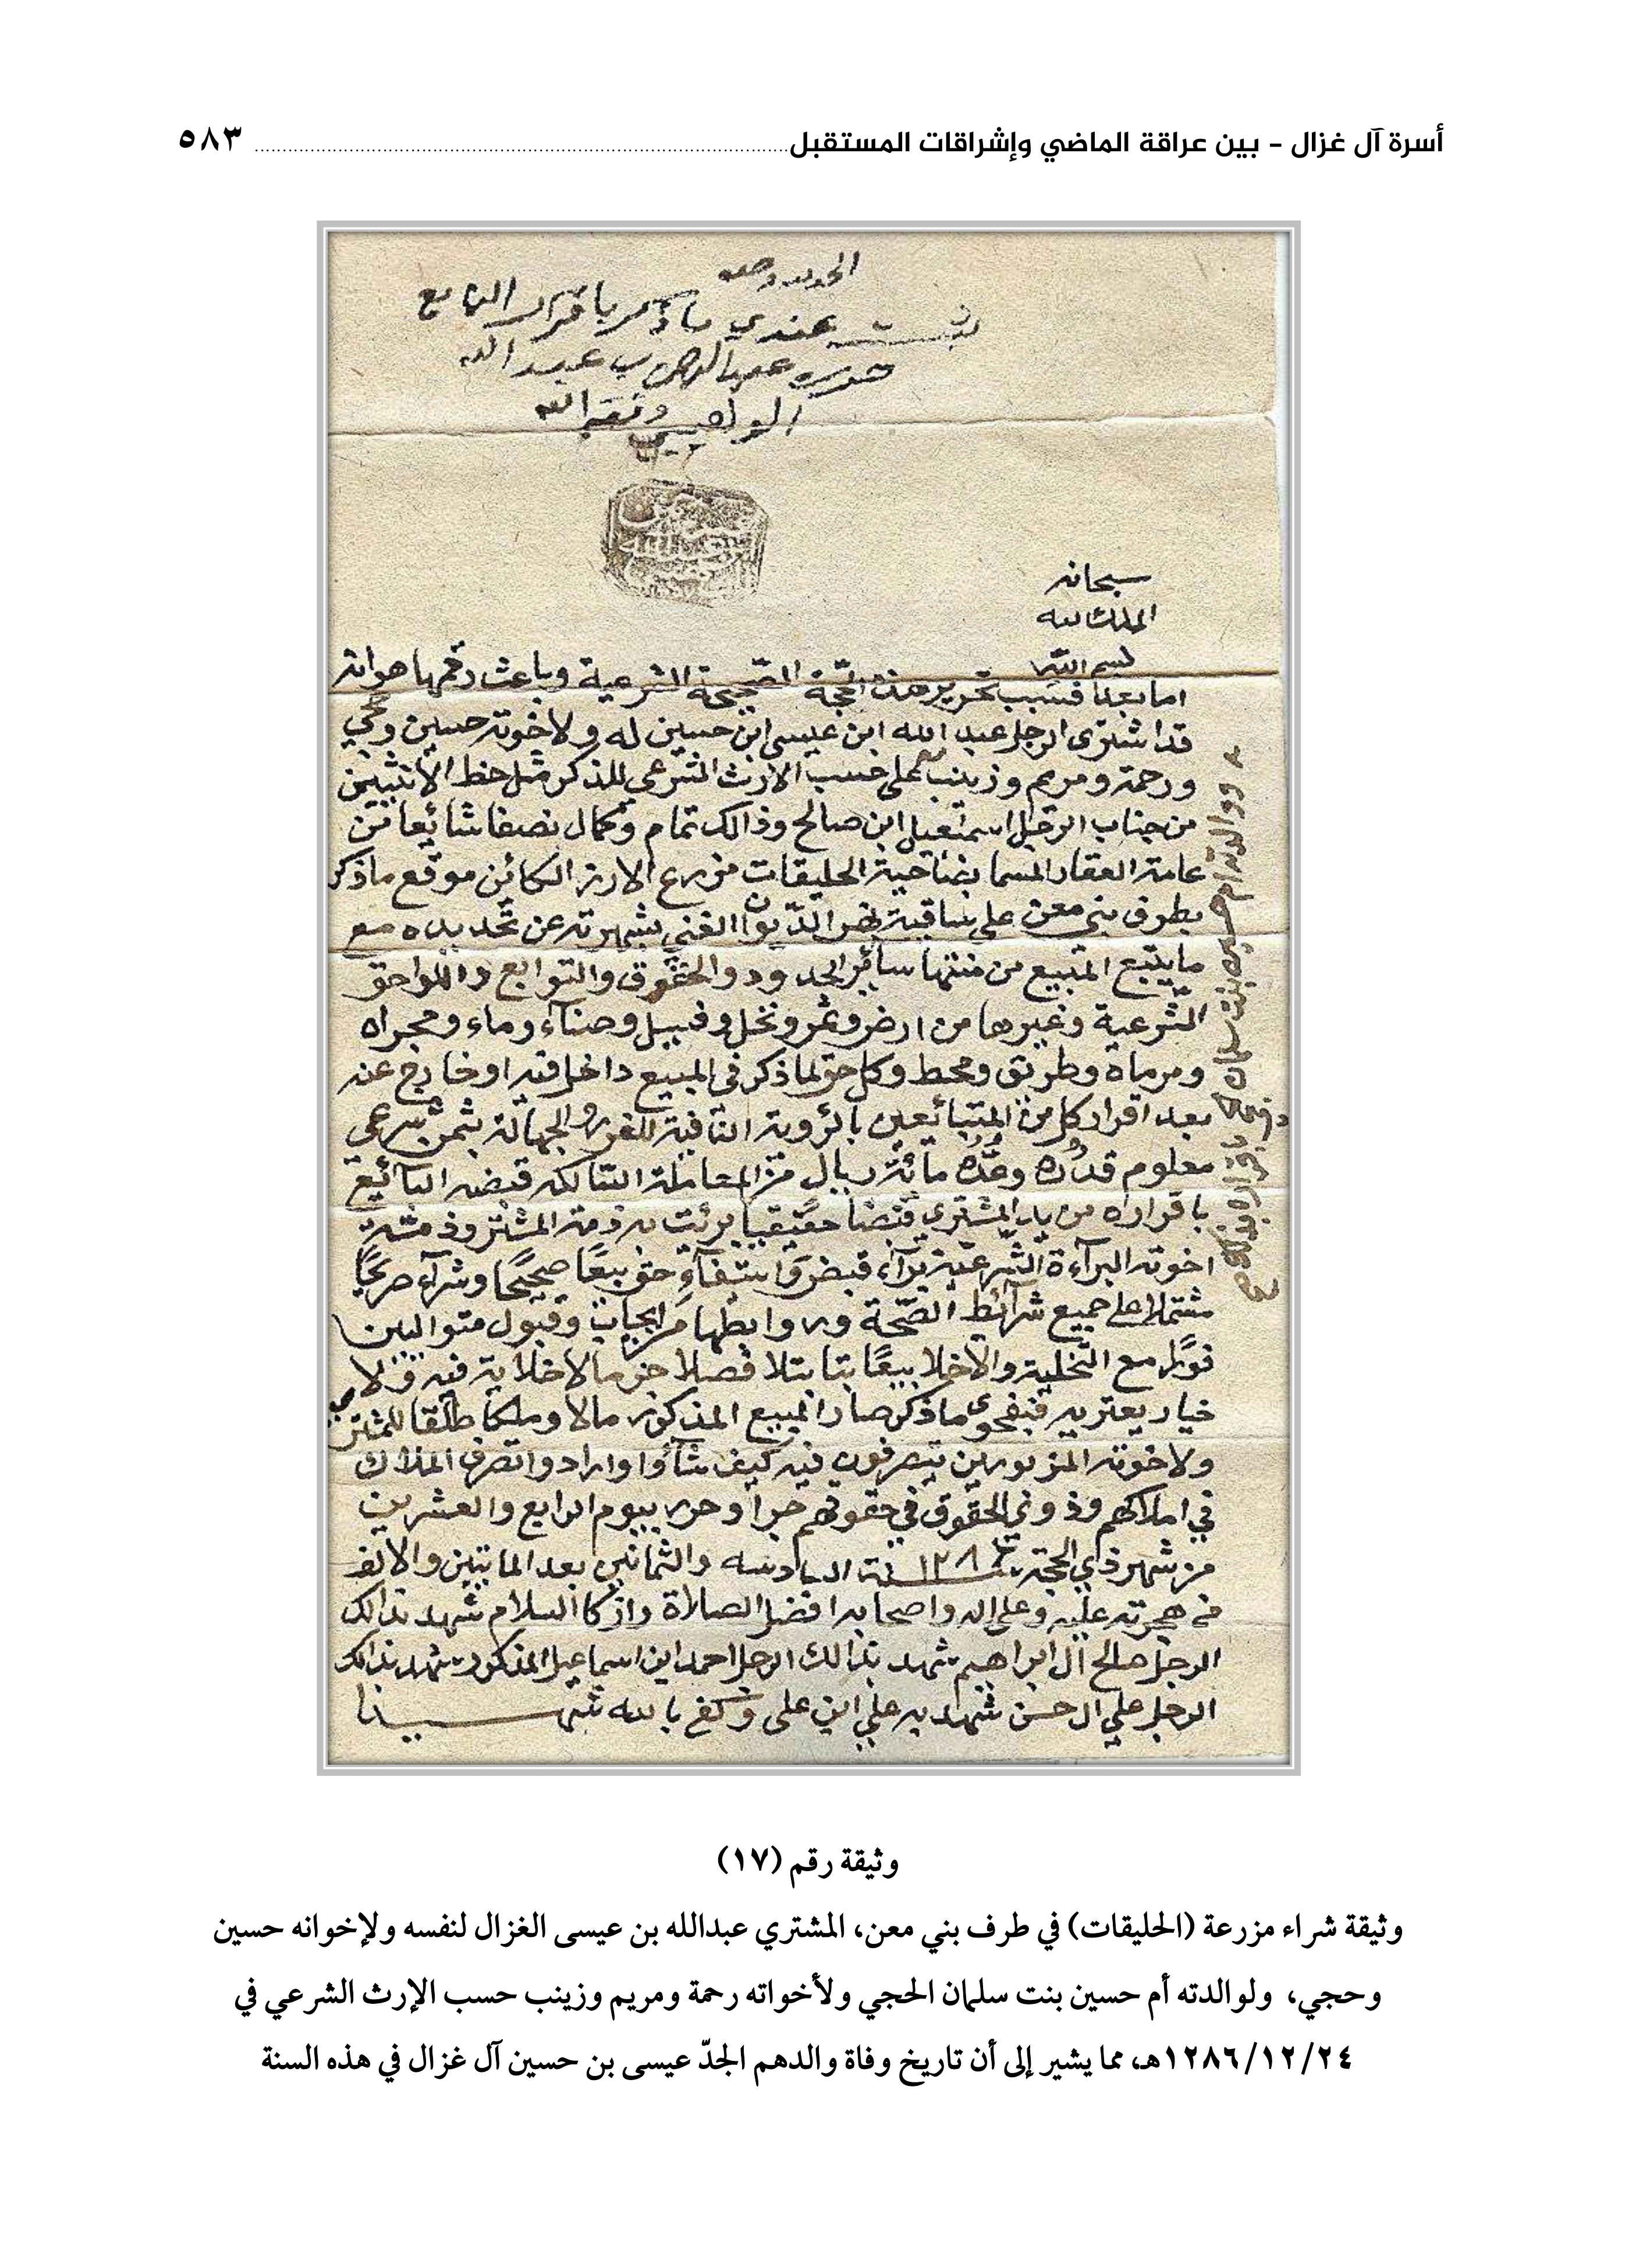 أسرة آل غزال - بين عراقة الماضي وإشراقات المستقبل ٥٨٣
الحمد لله وحده
ثبت عندي ما ذكر باقرار البايع
حرره عبد الرحمن بن عبد الله
الوهيبي وفقه الله
سبحانه
الملك لله
بسم الله
اما بعد فسبب تحرير هذه الحجّة الصّحيحة الشرعية وباعث رقمها هو انه
قد اشترى الرجل عبد الله ابن عيسى ابن حسين له ولاخوته حسين وحجي
ورحمة ومريم وزينب على حسب الارث الشرعي للذكر مثل حظ الأنثيين
من جناب الرجل اسمعيل ابن صالح وذالك تمام وكمال نصفا شائعا من
عامة العقار المسما بضاحية الحليقات مزرع الارز الكائن موقع ما ذكر
بطرف بني معن على ساقية نهر الغني بشهرته عن تحديده مع
ما يتبع المبيع من منتها سائر الحدود والحقوق والتوابع واللواحق
الشرعية وغيرها من ارض وثمر ونخل وفسيل وصناء وماء ومجراه
ومرماه وطريق ومحط وكل حق لما ذكر في المبيع داخل فيه او خارج عنه
بعد اقرار كل من المتبائعين بالرؤية النافية للغرر والجهالة بثمن شرعي
معلوم قدره وعدّه مائة ريال من المعاملة السالكه قبضه البائع
باقراره من يد المشتري قبضا حقيقيا برئت به ذمة المشتر وذمة
اخوته البرآءة الشرعية برآء قبض واستيفآء حق بيعًا صحيحًا وشرآء صريحًا
مشتملا على جميع شرآئط الصّحة وروابطها من ايجاب وقبول متواليين
قولا مع التخلية والاخلا بيعًا بتا بتلا فصلا جزما لا خلابة فيه ولا
خيار يعتريه فبفحوى ما ذكر صار المبيع المذكور مالا وملكا طلقا للمشتري
ولاخوته المزبورين يتصرفون فيه كيف شآؤا وارادوا تصرف الملاك
في املاكهم وذوي الحقوق في حقوقهم جرا وحرر بيوم الرابع والعشرين
من شهر ذي الحجة سنة ١٢٨٦ السادسه والثمانين بعد المايتين والالف
من هجرته عليه وعلى اله واصحابه افضل الصلاة وازكا السلام شهد بذالك
الرجل صالح آل ابراهيم شهد بذالك الرجل احمد ابن اسماعيل المذكور شهد بذالك
الرجل علي ال حسن شهد به علي ابن علي وكفى بالله شهيدا
ووالدته ام حسين بنت سلمان
وثيقة رقم (١٧)
وثيقة شراء مزرعة (الحليقات) في طرف بني معن، المشتري عبدالله بن عيسى الغزال لنفسه ولإخوانه حسين
وحجي، ولوالدته أم حسين بنت سلمان الحجي ولأخواته رحمة ومريم وزينب حسب الإرث الشرعي في
١٢٨٦/١٢/٢٤هـ، مما يشير إلى أن تاريخ وفاة والدهم الجدّ عيسى بن حسين آل غزال في هذه السنة